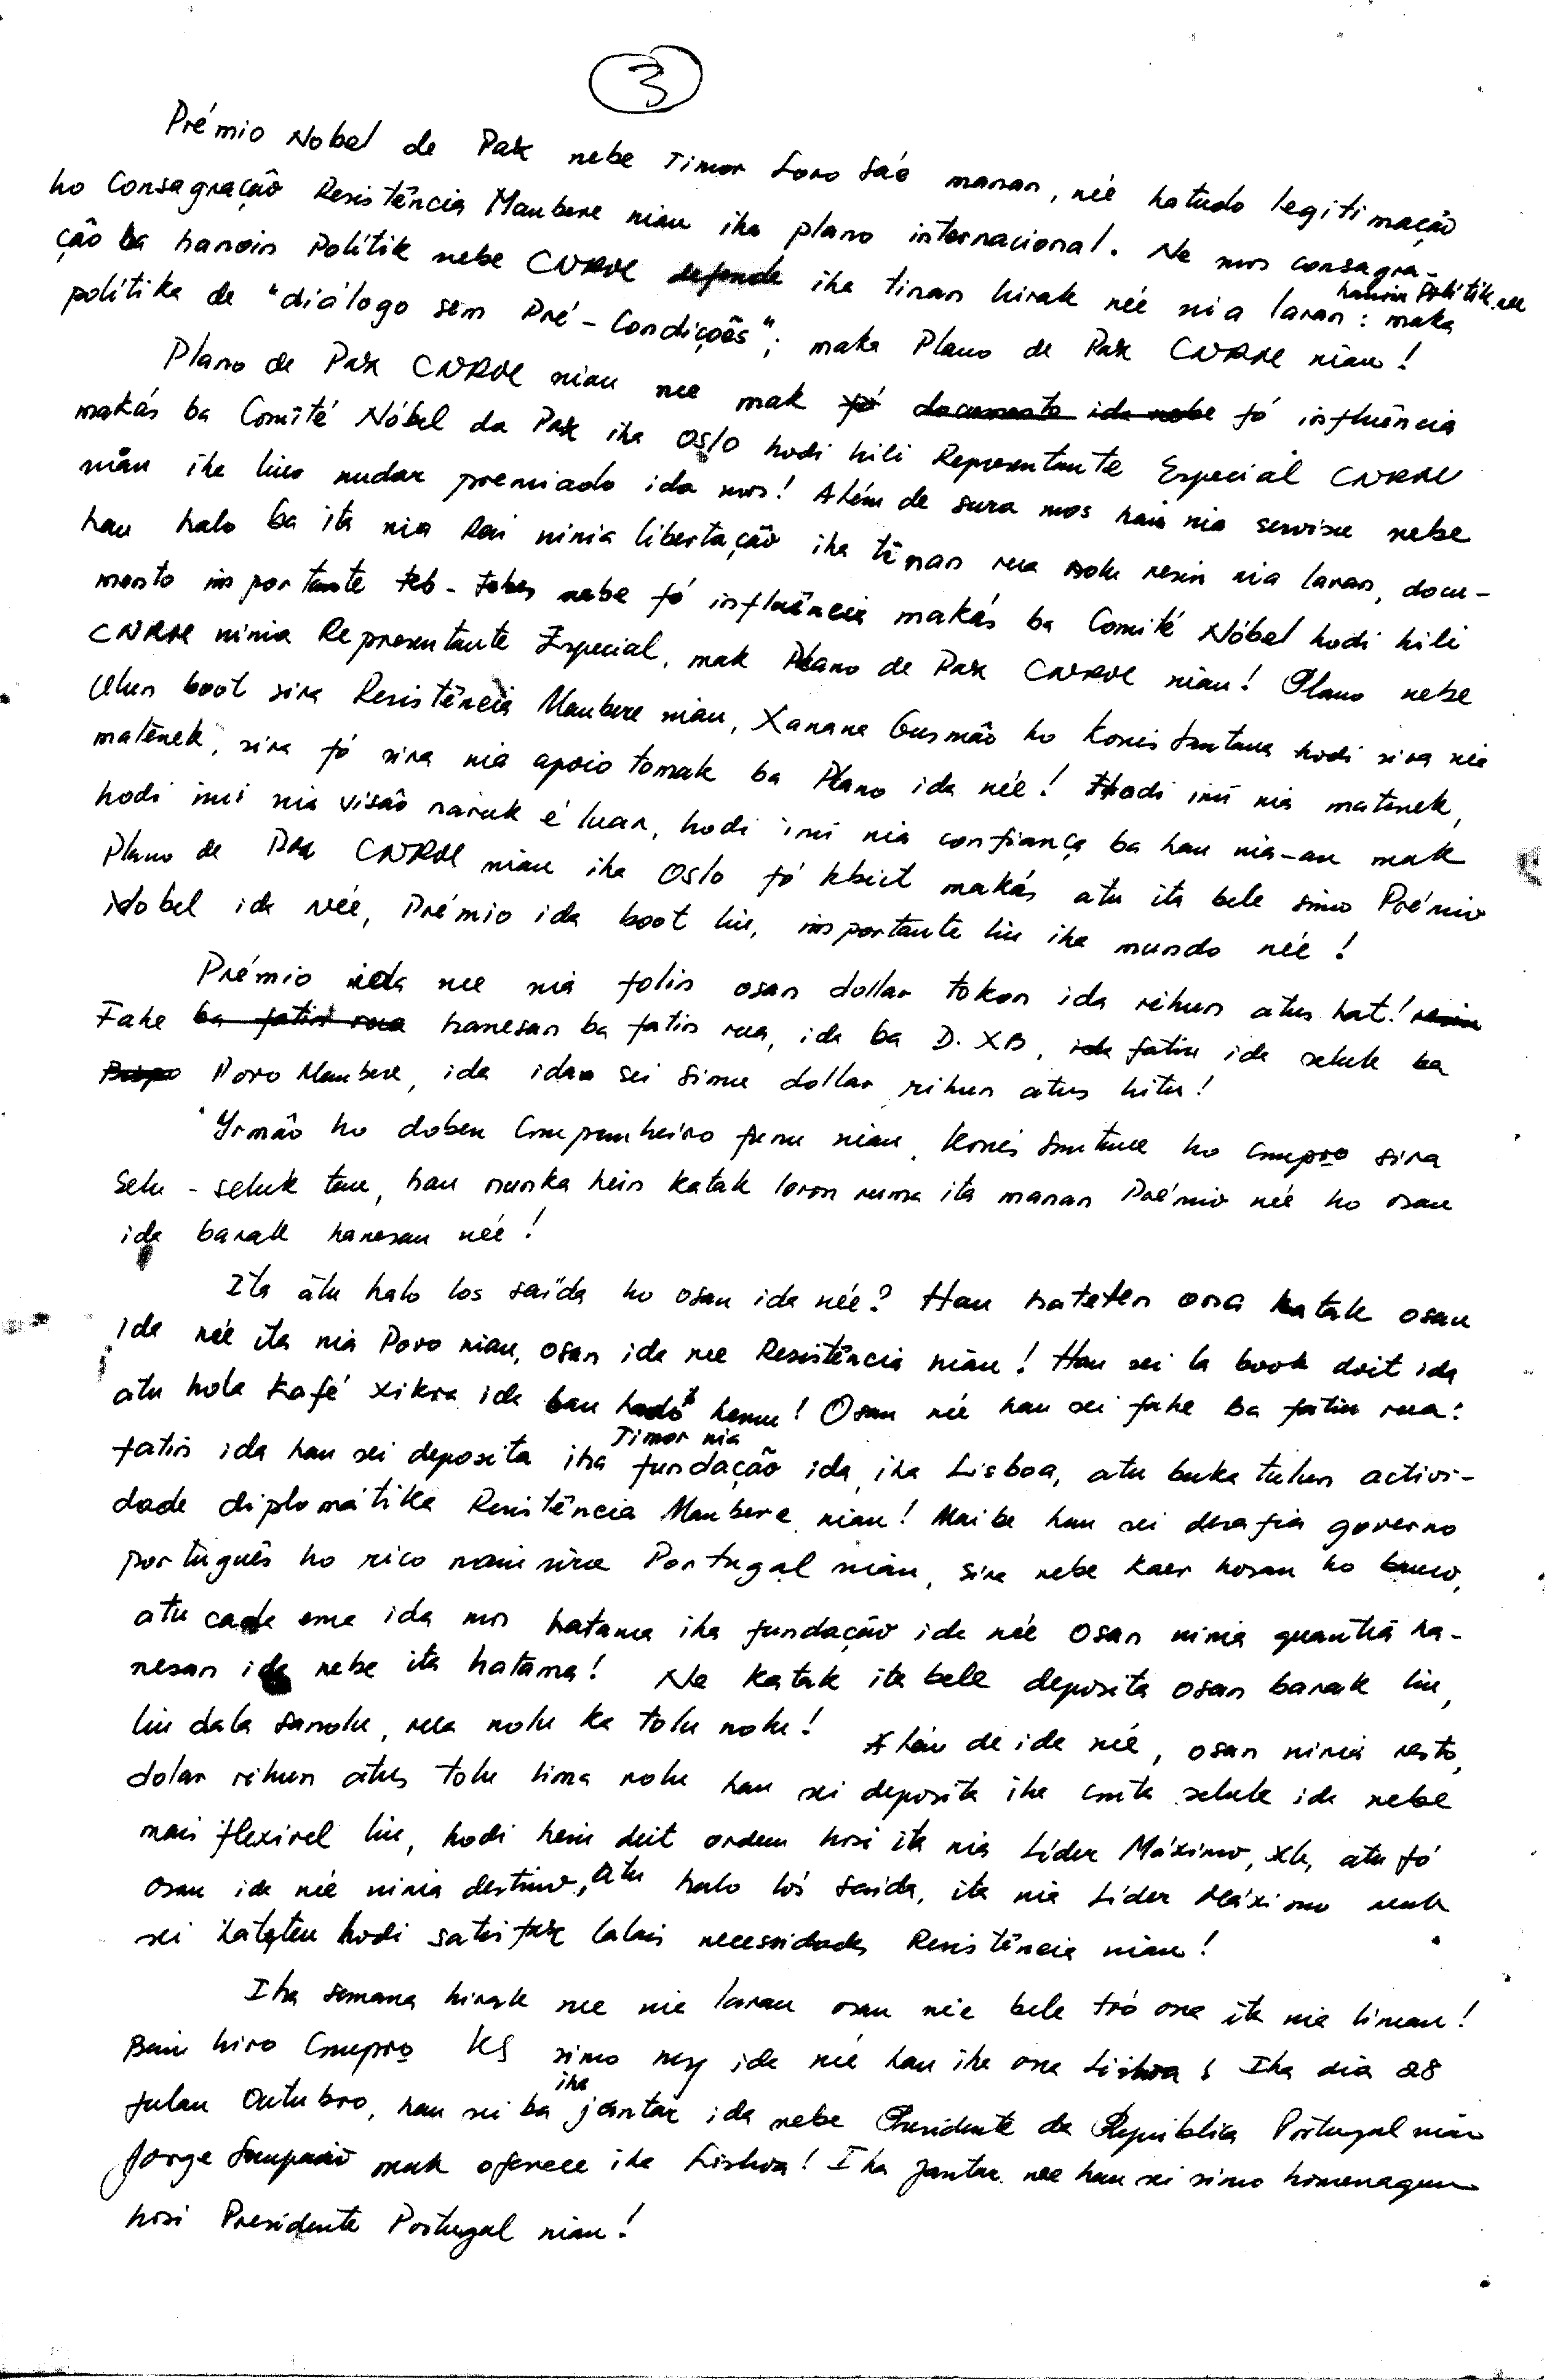 3
Prémio Nobel de Pax nebe Timor Loro Sáe manan, née hatudo legitimação
ho Consagração Resistência Maubere nian iha plano internacional. Ne mos consagra-
ção ba hanoin Politik nebe CNRM defende iha tinan hirak née nia laran: maka hanoin Politik nee
polítika de "diálogo sem Pré-Condições"; maka Plano de Pax CNRM nian!
Plano de Pax CNRM nian nee mak fó documento ida nebe fó influência
makás ba Comité Nóbel da Pax iha Oslo hodi hili Representante Especial CNRM
nian iha liur nudar premiado ida mos! Além de sura mos hau nia servisu nebe
hau halo ba ita nia Rai ninia libertação iha tinan rua nolu resin nia laran, docu-
mento importante teb-tebes nebe fó influência makás ba Comité Nóbel hodi hili
CNRM ninia Representante Especial, mak Plano de Pax CNRM nian! Plano nebe
Ulun boot sira Resistência Maubere nian, Xanana Gusmão ho Konis Santana hodi sira nia
matenek, sira fó sira nia apoio tomak ba Plano ida née! Hodi imi nia matenek,
hodi imi nia visão naruk é luan, hodi imi nia confiança ba hau nia-an mak
Plano de Pax CNRM nian iha Oslo fó kbiit makás atu ita bele simo Prémio
Nobel ida née, Prémio ida boot liu, importante liu iha mundo née!
Prémio ida nee nia folin osan dollar tokon ida rihun atus hat! resin
Fahe ba fatin rua hanesan ba fatin rua, ida ba D. XB, ida fatin ida seluk ba
Bispo Povo Maubere, ida idan sei simu dollar rihun atus hitu!
Yrmão ho doben Companheiro funu nian, Konis Santana ho compro sira
selu-seluk tan, hau nunka hein katak loron ruma ita manan Prémio née ho osan
ida barak hanesan née!
Ita atu halo los saída ho osan ida née? Hau hateten ona katak osan
ida née ita nia Povo nian, osan ida nee Resistência nian! Hau sei la book doit ida
atu hola Kafé xikra ida hau hodi hemu! Osan née hau sei fahe ba fatin rua:
fatin ida hau sei deposita iha Timor nia fundação ida, iha Lisboa, atu buka tulun activi-
dade diplomátika Resistência Maubere nian! Maibe hau sei desafia governo
português ho rico nain sira Portugal nian, sira nebe kaer hosan ho banco,
atu cada ema ida mos hatama iha fundação ida née osan ninia quantia ha-
nesan ida nebe ita hatama! Ne katak ita bele deposita osan barak liu,
liu dala sanolu, rua nolu ka tolu nolu! Além de ida née, osan ninia resto,
dolar rihun atus tolu lima nolu hau sei deposita iha conta seluk ida nebe
mais flexivel liu, hodi hein deit ordem hosi ita nia Líder Máximo, XG, atu fó
osan ida née ninia destino, atu halo lós saida, ita nia Líder Máximo mak
sei hateten hodi satisfax lalais necessidades Resistência nian!
Iha semana hirak nee nia laran osan née bele tró ona ita nia liman!
Bain hiro Compro KS simo msg ida née hau iha ona Lisboa! Iha dia 28
fulan Outubro, hau sei ba iha jantar ida nebe Presidente da República Portugal nian
Jorge Sampaio mak oferece iha Lisboa! Iha jantar nee hau sei simo homenagem
hosi Presidente Portugal nian!